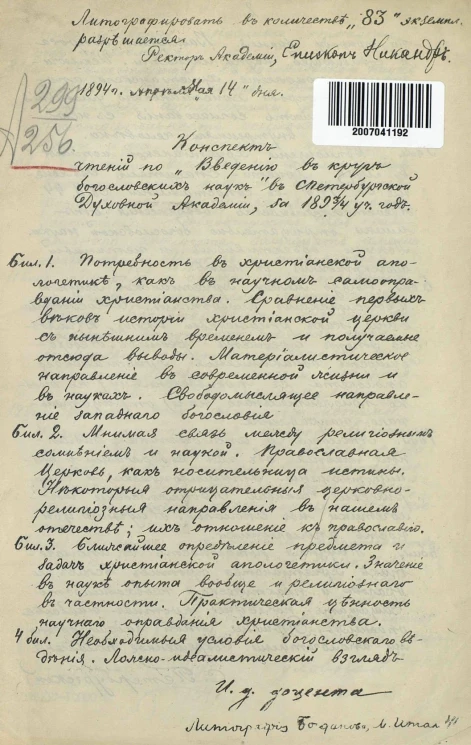 Литографировать въ количествѣ „83" экземпл.
разрѣшается.
Ректоръ Академіи, Епископъ Никандръ.
1894 г. Мая „14" дня.
299
256.
2007041192
Конспектъ
чтеній по „Введенію въ кругъ
богословскихъ наукъ" въ СПетербургской
Духовной Академіи, за 1893/4 уч. годъ.
Бил. 1. Потребность въ христіанской апо-
логетикѣ, какъ въ научномъ самооправ-
даніи христіанства. Сравненіе первыхъ
вѣковъ исторіи христіанской церкви
съ нынѣшнимъ временемъ и получаемые
отсюда выводы. Матеріалистическое
направленіе въ современной жизни и
въ наукахъ. Свободомыслящее направле-
ніе западнаго богословія
Бил. 2. Мнимая связь между религіознымъ
сомнѣніемъ и наукой. Православная
Церковь, какъ носительница истины.
Нѣкоторыя отрицательныя церковно-
религіозныя направленія въ нашемъ
отечествѣ; ихъ отношеніе къ православію.
Бил. 3. Ближайшее опредѣленіе предмета и
задачъ христіанской апологетики. Значеніе
въ наукѣ опыта вообще и религіознаго
въ частности. Практическая цѣнность
научнаго оправданія христіанства.
4 бил. Необходимыя условія богословскаго вѣ-
дѣнія. Ложно-идеалистическій взглядъ
И. д. доцента
Литографія Богданова, М. Итал